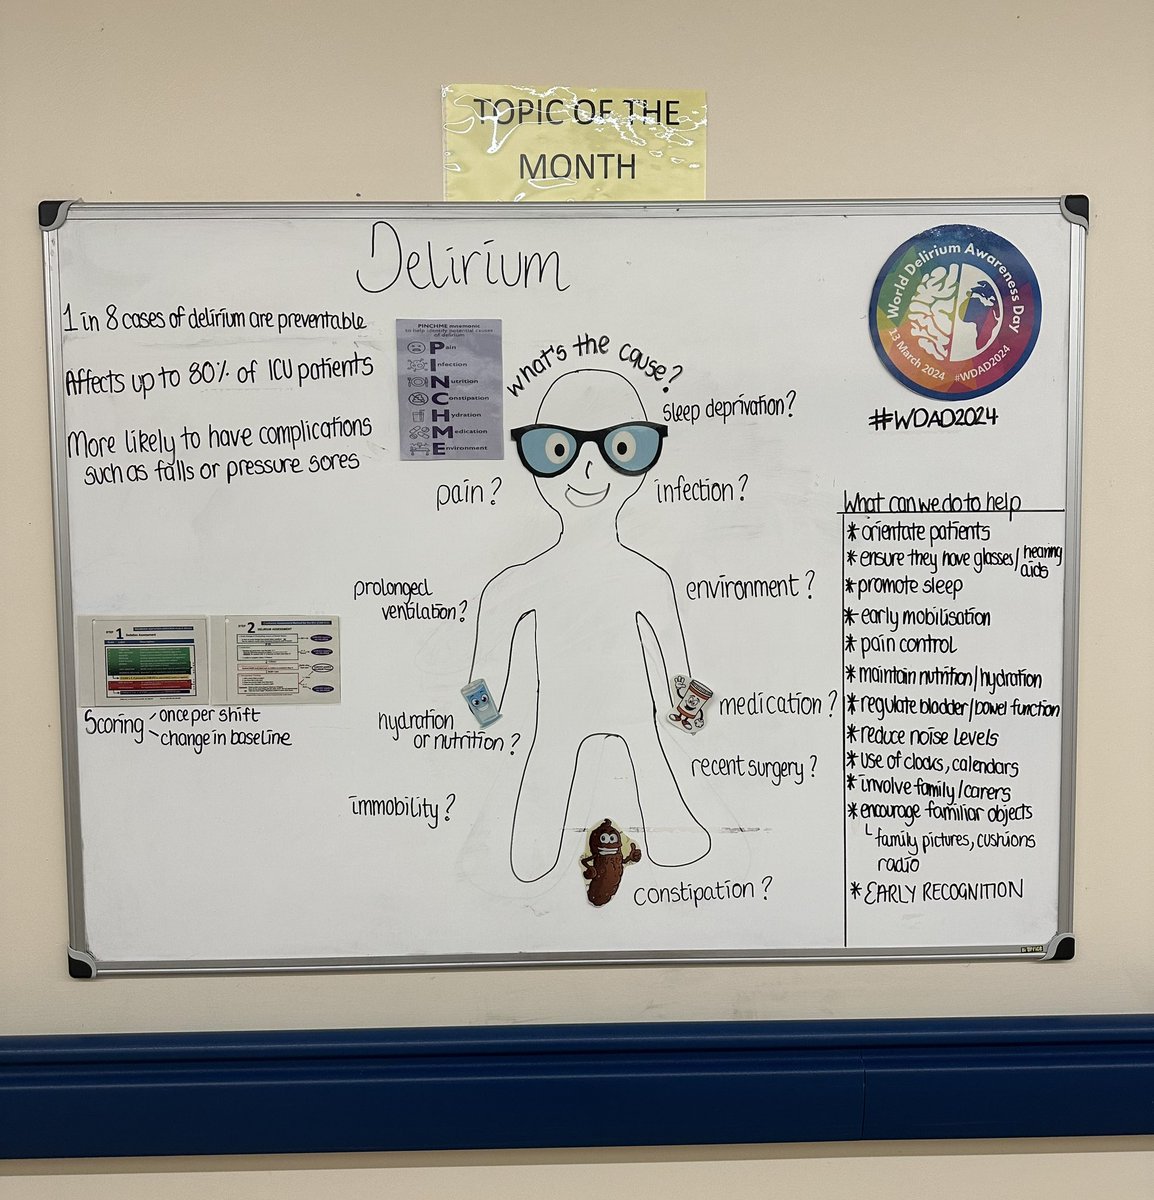 TOPIC OF THE
MONTH
Delirium
1 in 8 cases of delirium are preventable
Affects up to 80% of ICU patients
More likely to have complications
such as falls or pressure sores
PINCHME mnemonic
to help identify potential causes
of delirium
Pain
Infection
Nutrition
Constipation
Hydration
Medication
Environment
What's the cause?
sleep deprivation?
pain?
infection?
prolonged
ventilation?
environment?
hydration
or nutrition?
medication?
recent surgery?
immobility?
constipation?
STEP 1
STEP 2
DELIRIUM ASSESSMENT
Scoring
once per shift
change in baseline
World Delirium Awareness Day
13 March 2024 #WDAD2024
#WDAD2024
What can we do to help
* orientate patients
* ensure they have glasses/hearing
aids
* promote sleep
* early mobilisation
* pain control
* maintain nutrition/hydration
* regulate bladder/bowel function
* reduce noise levels
* use of clocks, calendars
* involve family/carers
* encourage familiar objects
family pictures, cushions
radio
* EARLY RECOGNITION